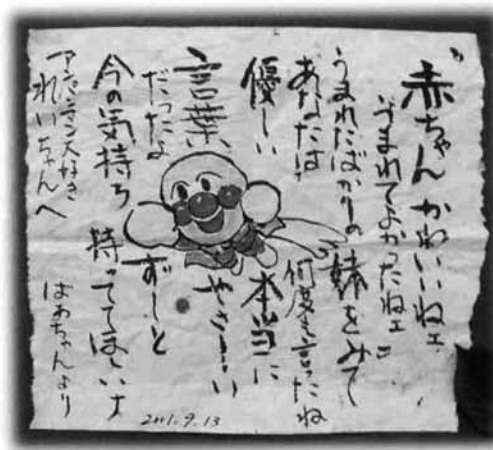 〝赤ちゃんかわいいねェ
うまれてよかったねェ〟
うまれたばかりの妹をみて
あなたは何度も言ったね
優しい本当に
言葉やさしい
だったよ
ずーと
今の気持ち持っててほしいナ
アンパンマン大好き
れいちゃんへ
ばあちゃんより
2011.9.13